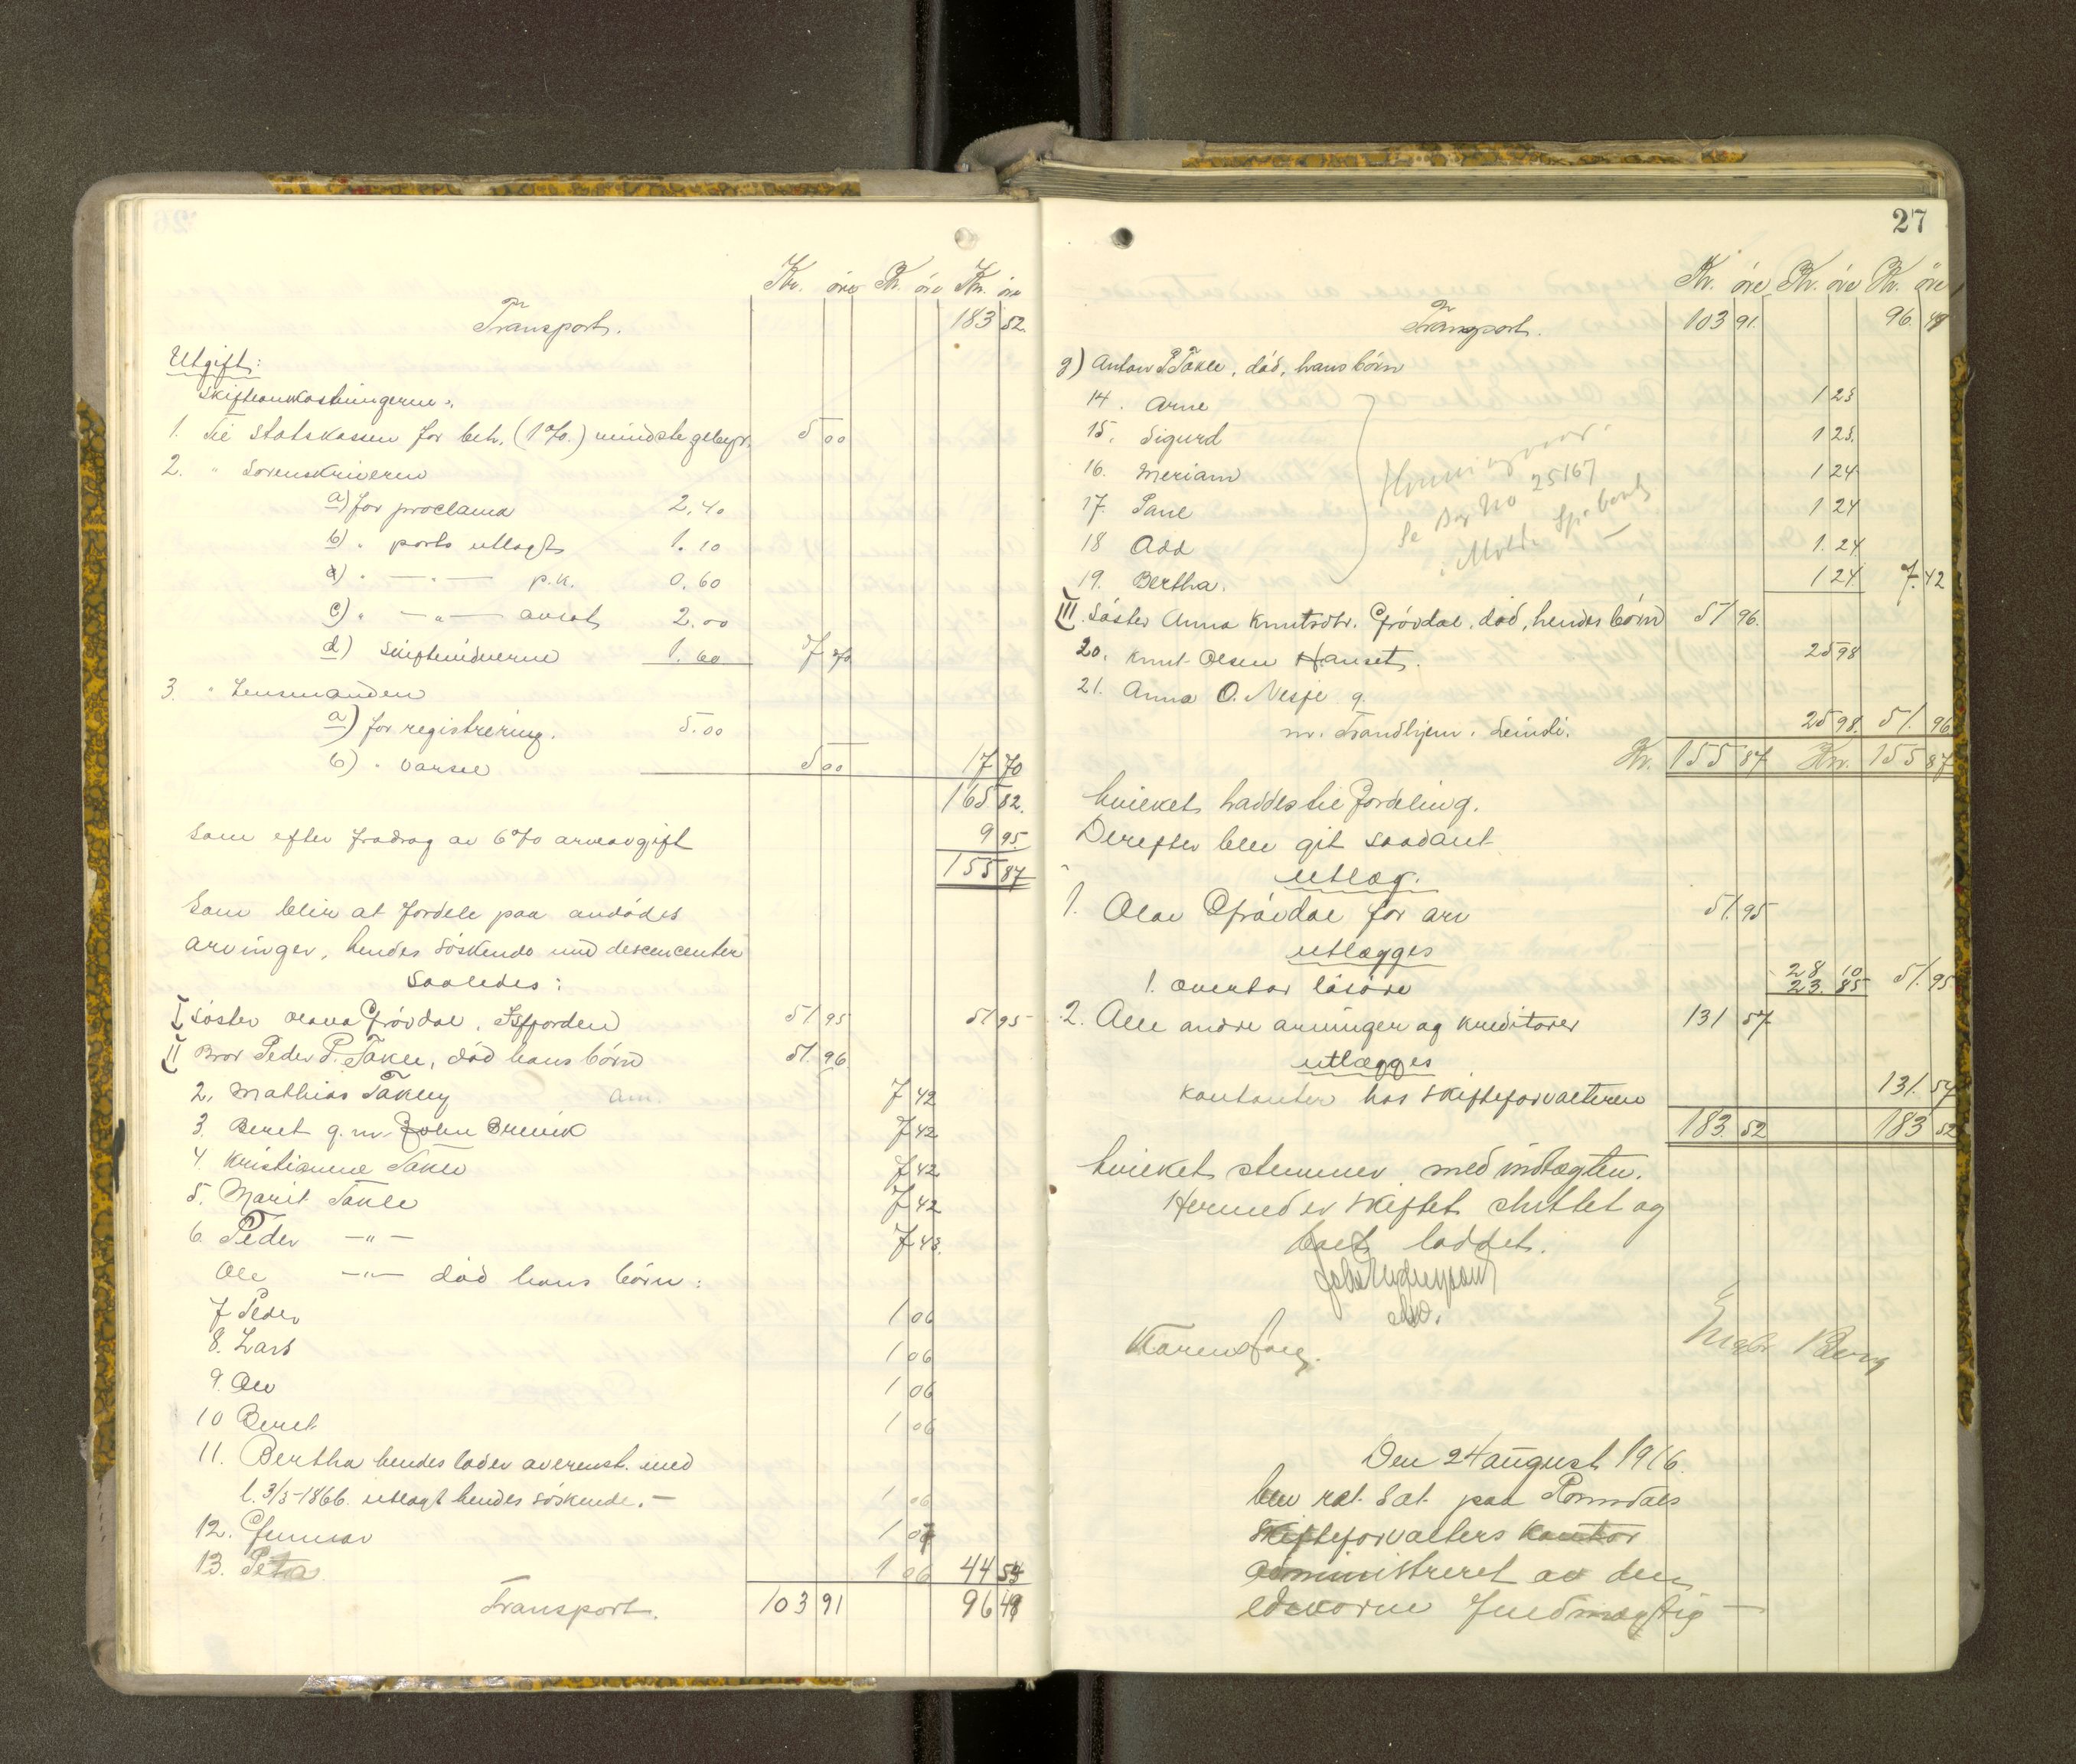 Kr. öre Kr. öre Kr. öre
Transport. 183 52.
Utgift:
Skifteomkostningerne:
1. Til Statskassen for beh. (1%.) mindste gebyr. 5 00
2. " Sorenskriveren
a) for proclama 2.40
b) " porto utlagt 1.10
" — " — p.k. 0.60
c) " — " — avsat 2.00
d) Skiftevidnerne 1.60 7 70
3. " Lensmanden
a) for registrering. 5.00
b) " varsel 5 00 17 70
165 82.
Som efter fradrag av 6% arveavgift 9 95.
155 87
Som blir at fordele paa avdödes
arvinger, hendes söskende med descencenter
saaledes:
I Söster Olava Grövdal, Isfjorden 51 95 51 95
II Bror Peder P. Takle, död hans börn 51. 96
2. Mathias Takley am. 7 42
3. Beret g. m. John Brevik 7 42
4. Kristianne Takle 7 42
5. Marit Takle 7 42
6. Peder — " — 7 43.
Ole — " — död hans börn:
7 Peder 1 06
8. Lars 1 06
9. Ole 1 06
10 Beret 1 06
11. Bertha hendes lader overenst. med
l. 3/5-1866. utlagt hendes söskende. — 1 06
12. Gunnar 1 07
13. Petra 1 06 44 54
Transport. 103 91 96 49
27
Kr. öre Kr. öre Kr. öre
Transport. 103 91. 96. 49
g) Anton P. Takle, död, hans börn
14. Arne 1 23
15. Sigurd 1 23.
16. Meriam 1 24
17. Paul 1 24
18 Odd 1. 24
19. Bertha. 1 24 7. 42
Se No 25167
i Molde Sp.bank
III. Söster Anna Knutsdtr. Grövdal, död, hendes börn 51 96.
20. Knut Olsen Hanset. 25 98
21. Anna O. Nesje g.
m. Trondhjem. 25 98. 51. 96
Kr. 155 87 Kr. 155 87
hvilket haddes til fordeling.
Derefter blev git saadant
utlæg.
1. Olav Grövdal for arv 51. 95
utlægges
1. overtar lösöre 28 10
23. 85 51. 95
2. Alle andre arvinger og kreditorer 131 57
utlægges
kontanter hos skifteforvalteren 131. 57
183. 52 183 52
hvilket stemmer med indtægten.
Hermed er skiftet sluttet og
boet loddet.
Den 24 august 1916.
blev ret sat paa Romsdals
skifteforvalters kontor
administreret av den
edsvorne fuldmægtig —